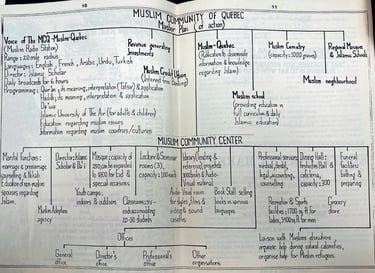 10
11
MUSLIM COMMUNITY OF QUEBEC
Master Plan (of action)
Voice of The MCQ-Muslim-Quebec
(Muslim Radio Station)
Range: 20 mile radius
Languages: English, French, Arabic, Urdu, Turkish
Director: Islamic Scholar
Daily broadcast for 6 hours
Programming: Qur'an its meaning, interpretation (Tafsir) & application
Hadith; its meaning, interpretation & application
Da'wa
Islamic University of The Air (for adults & children)
Education regarding muslim issues
Information regarding muslim countries/cultures
Revenue generating
Investments
Muslim Credit Union
(interest free
Banking)
Muslim-Quebec
(Publication to disseminate
information & knowledge
regarding Islam)
Muslim school
(providing education in
full curriculum & daily
Islamic education)
Muslim Cemetery
(capacity: 3000 graves)
Regional Mosques
& Islamic Schools
Muslim neighbourhood
MUSLIM COMMUNITY CENTER
Marital functions:
marriage & premarriage
counselling & Nikah
Education of non muslim
spouses regarding
Islam.
Muslim Adoption
agency
Director: Islamic
Scholar & Da'i
Youth camps:
indoors & outdoors
Mosque; capacity of
special occasions
Lecture & Seminar
rooms (3),
capacity: 100 each
Classrooms
accommodating
25-30 students
Library (lending &
reference); Audio-
Visual material
Audio-Visual room
for slides, films &
video & sound
Book Stall selling
books in various
languages
Professional services:
medical, dental,
legal, accounting,
counselling
Recreation & Sports
Dining Hall
Cafeteria,
capacity: 300
Grocery
store
Funeral
facilities:
bathing &
preparing
Offices
General
office
Director's
office
Professional's
office
Other
organisations
Liaison with Muslims elsewhere
organise help during natural calamities,
organise help for Muslim refugees.